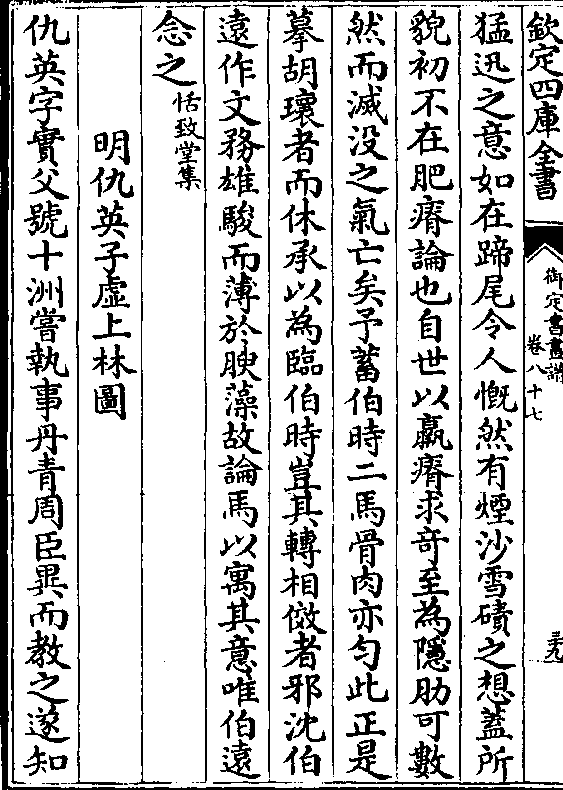 欽定四庫全書
御定書畫譜
卷八十七
三九
猛迅之意如在蹄尾令人慨然有煙沙雪磧之想蓋所
貌初不在肥瘠論也自世以羸瘠求竒至為隱肋可數
然而滅没之氣亡矣予蓄伯時二馬骨肉亦勻此正是
摹胡瓌者而休承以為臨伯時豈其轉相倣者邪沈伯
遠作文務雄駿而薄於腴藻故論馬以寓其意唯伯遠
念之恬致堂集
明仇英子虛上林圖
仇英字實父號十洲嘗執事丹青周臣異而教之遂知